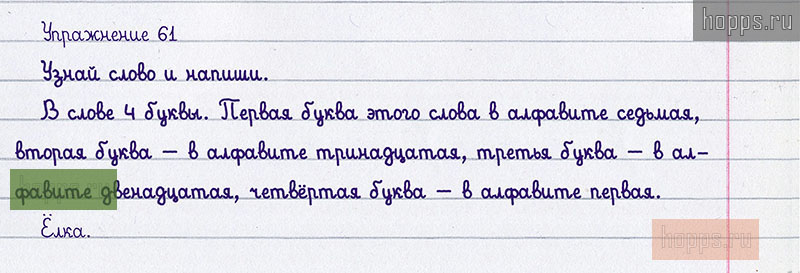 hopps.ru
Упражнение 61
Узнай слово и напиши.
В слове 4 буквы. Первая буква этого слова в алфавите седьмая,
вторая буква — в алфавите тринадцатая, третья буква — в ал-
фавите двенадцатая, четвёртая буква — в алфавите первая.
Ёлка.
hopps.ru